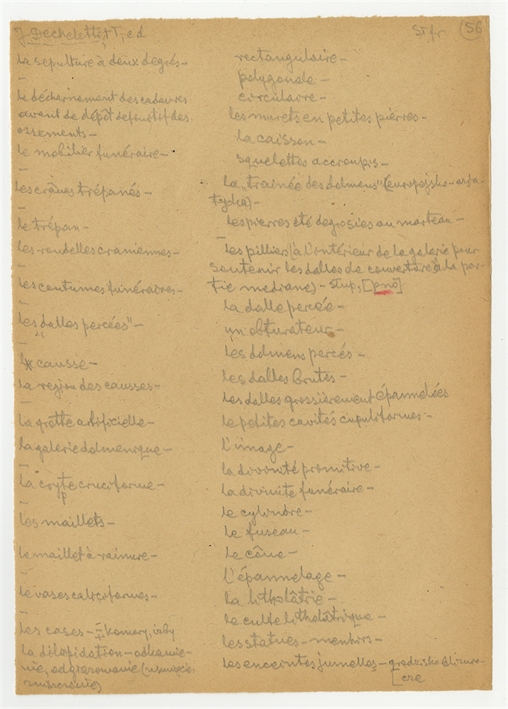 J. Dechelette, t I, cd
St. fr (56)
la sépulture à deux degrés –
le décharnement des cadavres
avant de dépôt définitif des
ossements –
le mobilier funéraire –
les crânes trépanés –
le trépan –
les rondelles craniennes –
les coutumes funéraires –
les dalles percées" –
causse –
la region des causses –
la grotte artificielle –
la galerie dolmenique –
la crypte cruciforme –
les maillets –
le maillet à rainure –
le vases caliciformes –
les cases – komory, izby
la délapidation –
rectangulaire –
polygonale –
circulaire –
les murets en petites pierres –
la caisson –
squelettes accroupis –
la "trainée des dolmens" (europejsko-azja-
tycka) –
les pierres été degrosies au marteau –
les pillier (à l'intérieur de la galerie pour
soutenir les dalles de couverture à la par-
tie mediane) – słup, [pno]
la dalle percée –
un obturateur –
les dolmens percés –
les dalles brutes –
les dalles grossièrement épannelées
le petites cavités cupuliformes –
l'image –
la divinité primitive –
la divinite funéraire –
le cylindre –
le fuseau –
le cône –
l'épannelage –
la litholâtrie –
le culte litholâtrique –
les statues – menhirs –
les enceintes jumelles – grodzisko bliźnia-
cze